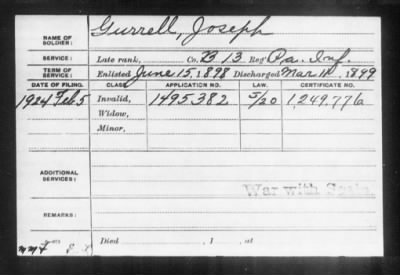 Gurrell, Joseph
NAME OF SOLDIER:
SERVICE: Late rank, Co. B 13 Reg't Pa. Inf.
TERM OF SERVICE: Enlisted June 15, 1898 Discharged Mar 11, 1899
DATE OF FILING. CLASS. APPLICATION NO. LAW. CERTIFICATE NO.
1924 Feb 5 Invalid, 1495,382 5/20 1,249,776
Widow,
Minor,
ADDITIONAL SERVICES:
War with Spain.
REMARKS:
Died , 1 , at